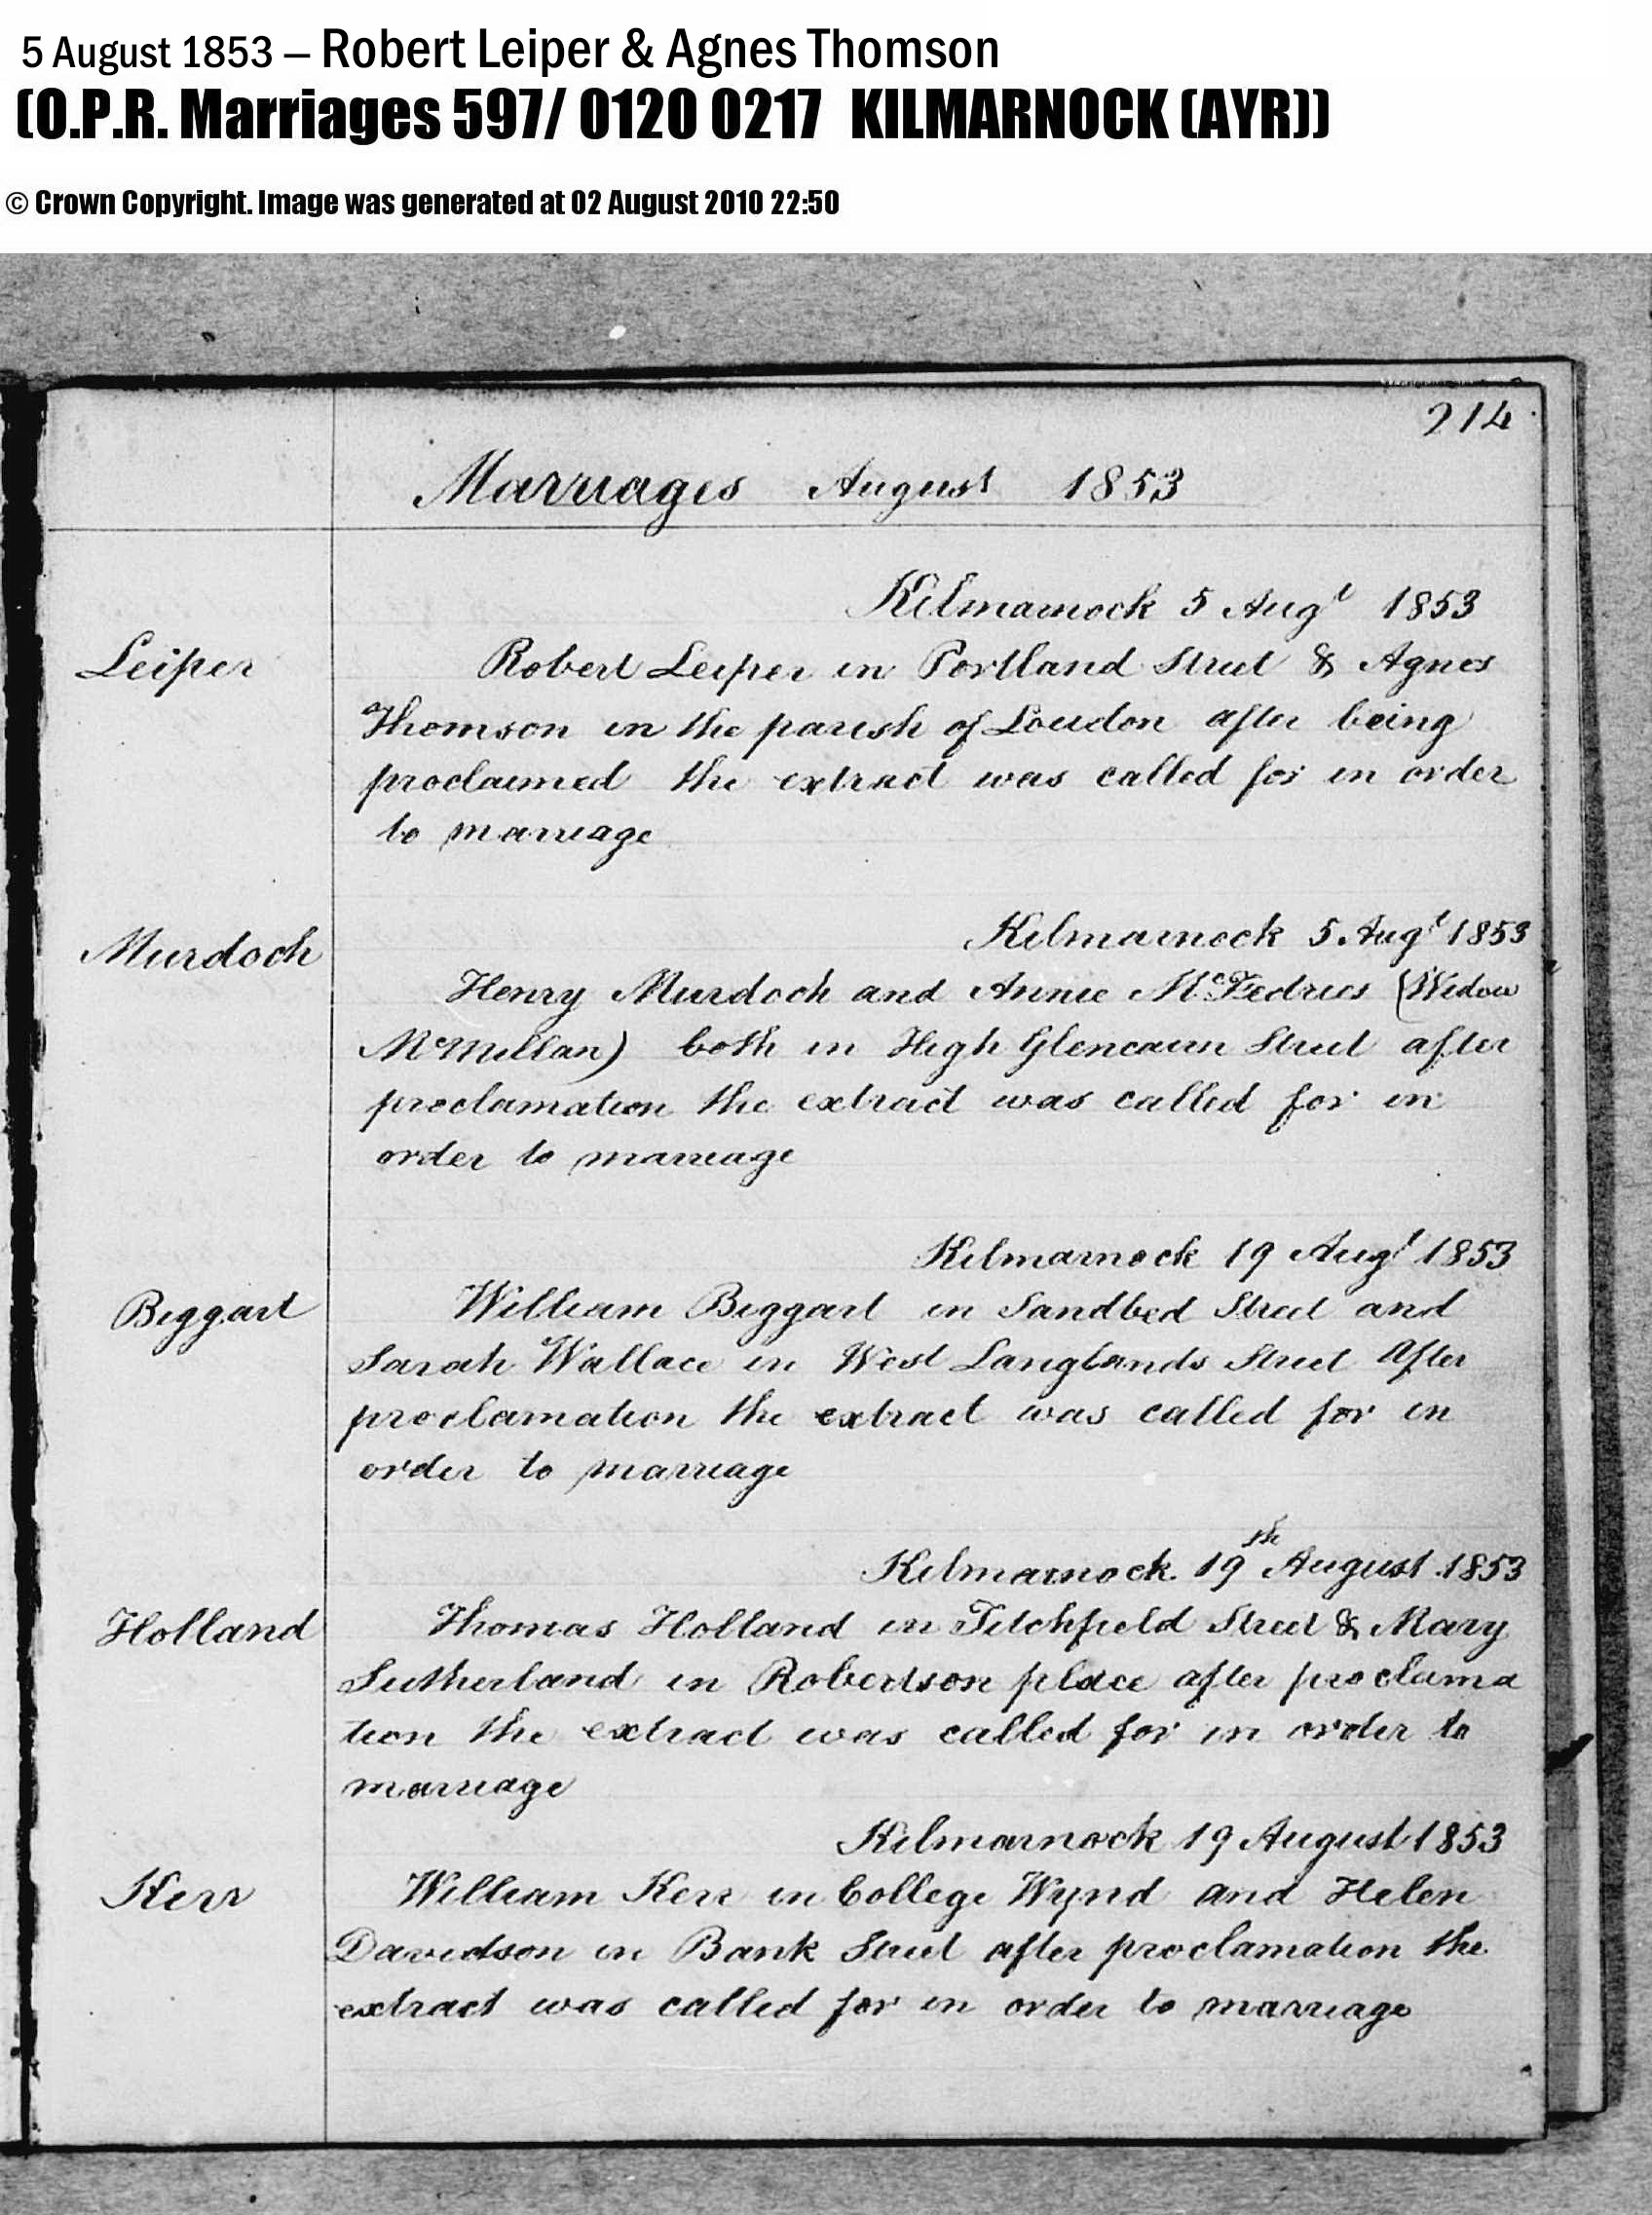 5 August 1853 – Robert Leiper & Agnes Thomson
(O.P.R. Marriages 597/ 0120 0217 KILMARNOCK (AYR))
© Crown Copyright. Image was generated at 02 August 2010 22:50
214
Marriages August 1853
Kilmarnock 5 Augt 1853
Leiper Robert Leiper in Portland Street & Agnes
Thomson in the parish of Loudon after being
proclaimed the extract was called for in order
to marriage
Kilmarnock 5 Augt 1853
Murdoch
Henry Murdoch and Annie McFedries (Widow
McMillan) both in High Glencairn Street after
proclamation the extract was called for in
order to marriage
Kilmarnock 19 Augt 1853
Biggart William Biggart in Sandbed Street and
Sarah Wallace in West Langlands Street after
proclamation the extract was called for in
order to marriage
Kilmarnock 19th August 1853
Holland Thomas Holland in Titchfield Street & Mary
Sutherland in Robertson place after proclama
tion the extract was called for in order to
marriage
Kilmarnock 19 August 1853
Kerr William Kerr in College Wynd and Helen
Davidson in Bank Street after proclamation the
extract was called for in order to marriage